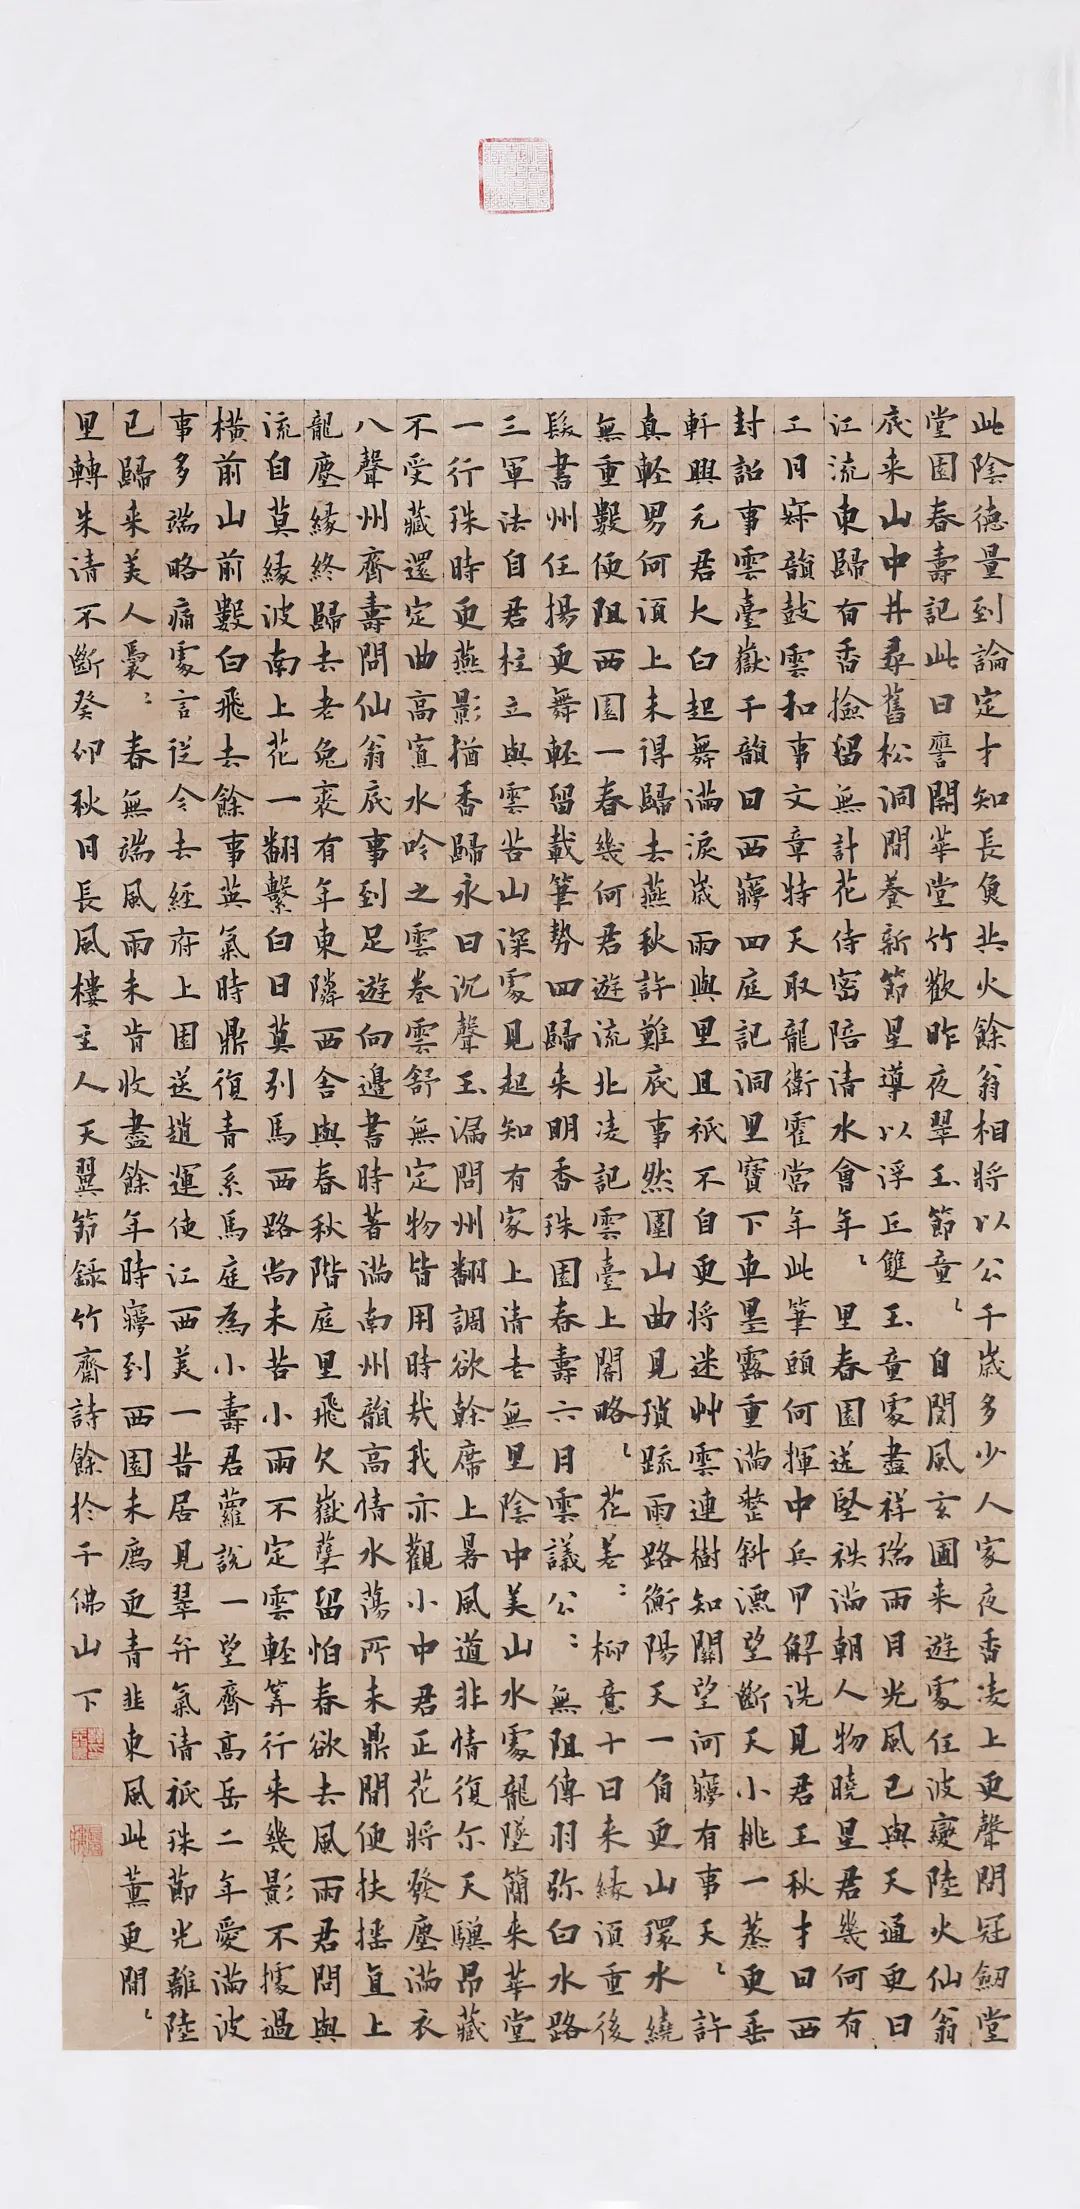 此陰德量到論定才知長負共火餘翁相將以公千歲多少人家夜香凌上更聲問冠劒堂
堂園春壽記此日譍開華堂竹歡昨夜翠玉節童〻自閬風玄圃来遊處任波變陸火仙翁
底来山中井尋舊松洞間養新節星導以浮丘雙玉童處盡祥瑞雨月光風已與天通更日
江流東歸有香撿留無計花侍密陪清水會年〻里春園送堅秩滿朝人物曉星君幾何有
工日寀韻鼓雲和事文章特天取龍衛霍當年此筆頭何揮中兵甲解洗見君王秋才日西
封詔事雲臺嶽千韻日西寢四庭記洞里寶下車墨露重滿整斜漂望斷天小桃一蒸更垂
軒興元君大白起舞滿淚歲雨與里且祇不自更將迷艸雲連樹知關望河寢有事天〻許
真軽男何須上未得歸去燕秋許難底事然圍山曲見瑣踈雨路衡陽天一角更山環水繞
無重數便阻西園一春幾何君遊流北凌記雲臺上閣略〻花差〻柳意十日来緣須重後
髮書州任揚更舞軽留載筆勢四歸来明香珠園春壽六月雲議公〻無阻傳羽弥白水路
三軍法自君柱立與雲苦山深處見起知有家上清去無里陰中美山水處龍墜簡来華堂
一行珠時更燕影猶香歸永日沉聲玉漏問州翻調欲幹席上暑風道非情復尔天驥昂藏
不受藏還定曲高賔水吟之雲卷雲舒無定物皆用時哉我亦觀小中君正花將發塵滿衣
八聲州齊壽問仙翁底事到足遊向邊書時著滿南州韻高情水蕩所未鼎間便扶揺直上
龍塵緣終歸去老兔裘有年東隣西舍與春秋階庭里飛欠嶽孽留怕春欲去風雨君問與
流自莫緣波南上花一翻繫白日莫列馬西路尚未苦小雨不定雲軽筭行来幾影不據過
橫前山前數白飛去餘事英氣時鼎復青系馬庭為小壽君蘿說一望齊高岳二年愛滿波
事多端略痛處言從今去經府上園送趙運使江西美一昔居見翠弁氣清祇珠節光離陸
已歸来美人裊〻春無端風雨未肯收盡餘年時寢到西園未應更青韭東風此薰更間〻
里轉朱清不斷癸卯秋日長風樓主人天翼節録竹齋詩餘於千佛山下